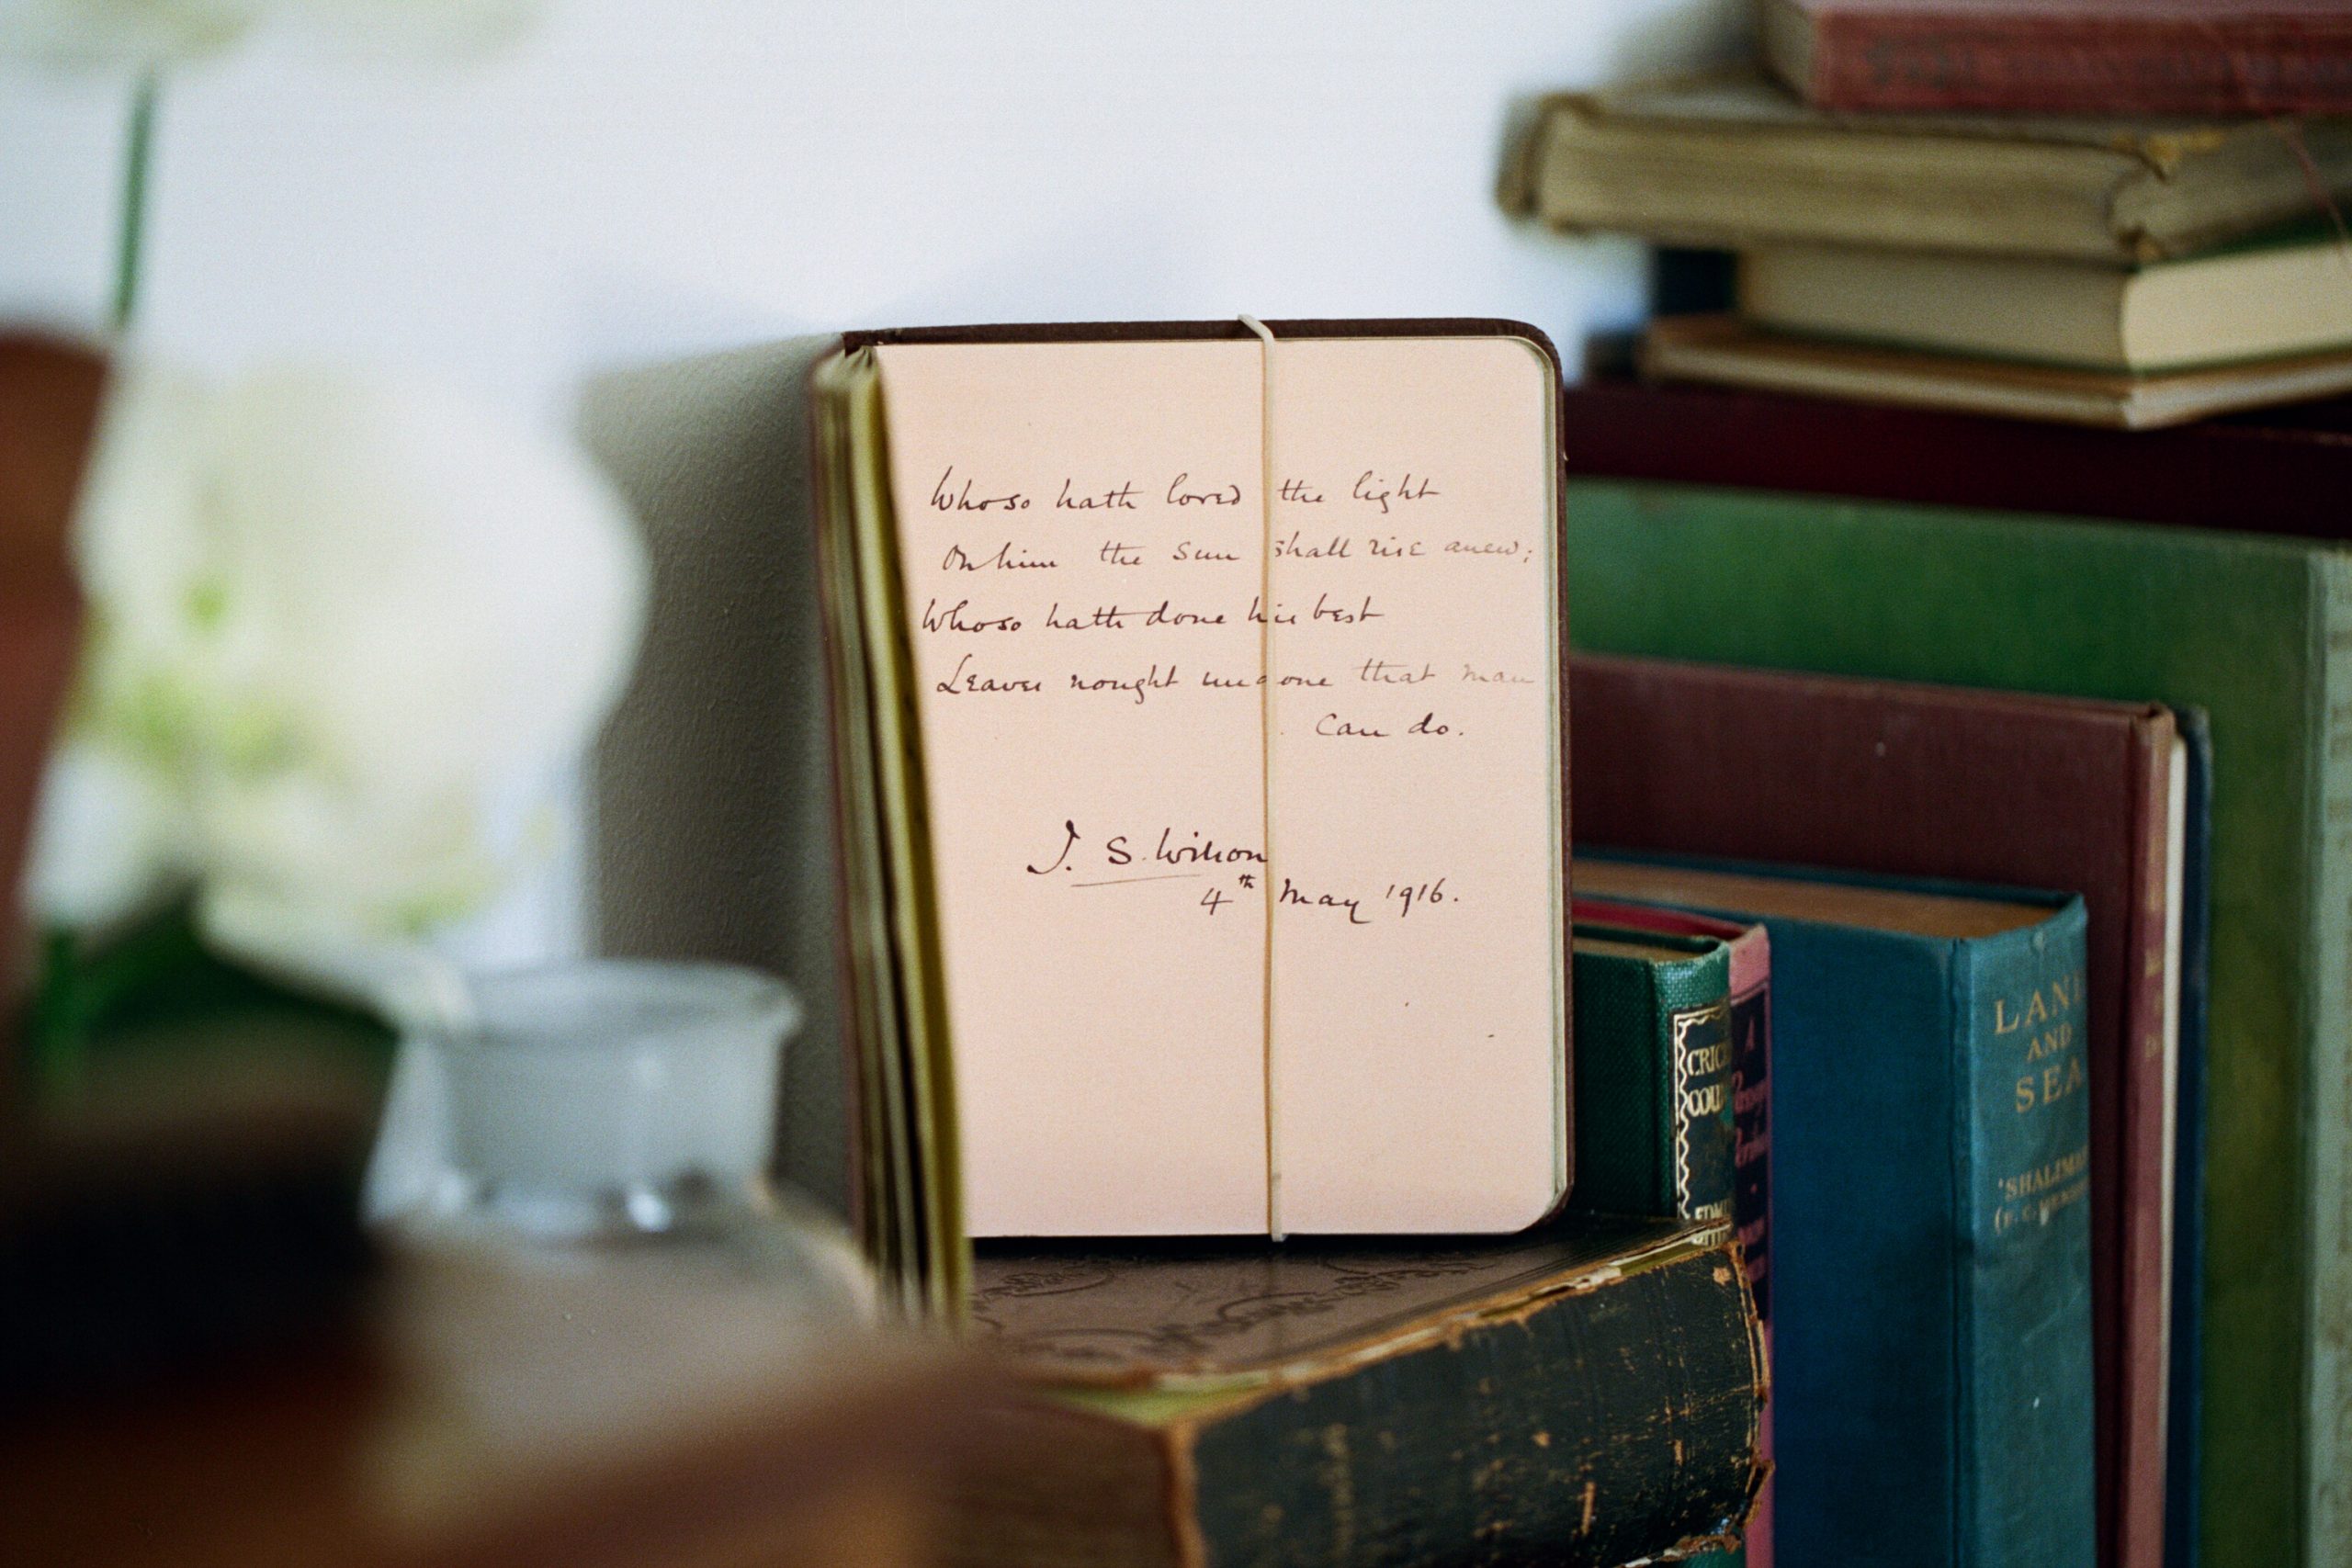 Whoso hath loved the light
On him the Sun shall rise anew;
Whoso hath done his best
Leaves nought undone that man
can do.
J. S. Wilson
4th May 1916.
LAND
AND
SEA
'SHALIMA
CRIC
COU
EDM
A